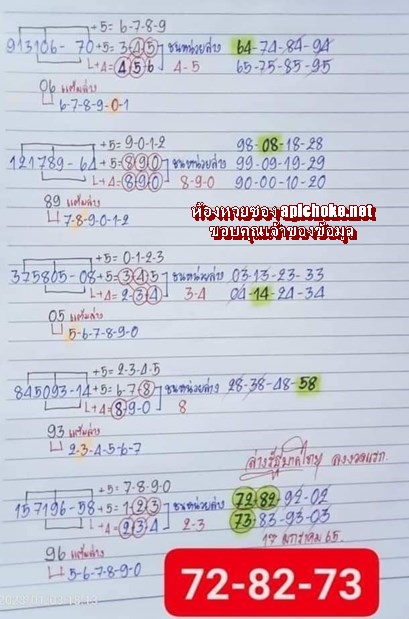 +5= 6-7-8-9
913106-70 +5= 3-4-5 ชนหน่วยล่าง 64-74-84-94
L+4= 4 5 6 4-5 65-75-85-95
06 แต้มล่าง
6-7-8-9-0-1
+5= 9-0-1-2 98-08-18-28
121789-64 +5= 8 9 0 ชนหน่วยล่าง 99-09-19-29
L+4= 8-9-0 8-9-0 90-00-10-20
89 แต้มล่าง
7-8-9-0-1-2
ห้องหวยซอง apichoke.net
ขอบคุณเจ้าของข้อมูล
+5= 0-1-2-3
375805-08 +5= 3 4 5 ชนหน่วยล่าง 03-13-23-33
L+4= 2-3-4 3-4 04-14-24-34
05 แต้มล่าง
5-6-7-8-9-0
+5= 2-3-4-5
845093-14 +5= 6-7-8 ชนหน่วยล่าง 28-38-48-58
L+4= 8-9-0 8
93 แต้มล่าง
2-3-4-5-6-7
ล่างรัฐบาลไทย งวดแรก
+5= 7-8-9-0
157196-58 +5= 1-2-3 ชนหน่วยล่าง 72-82-92-02
L+4= 2 3 4 2-3 73 83-93-03
17 มกราคม 65
96 แต้มล่าง
5-6-7-8-9-0
72-82-73